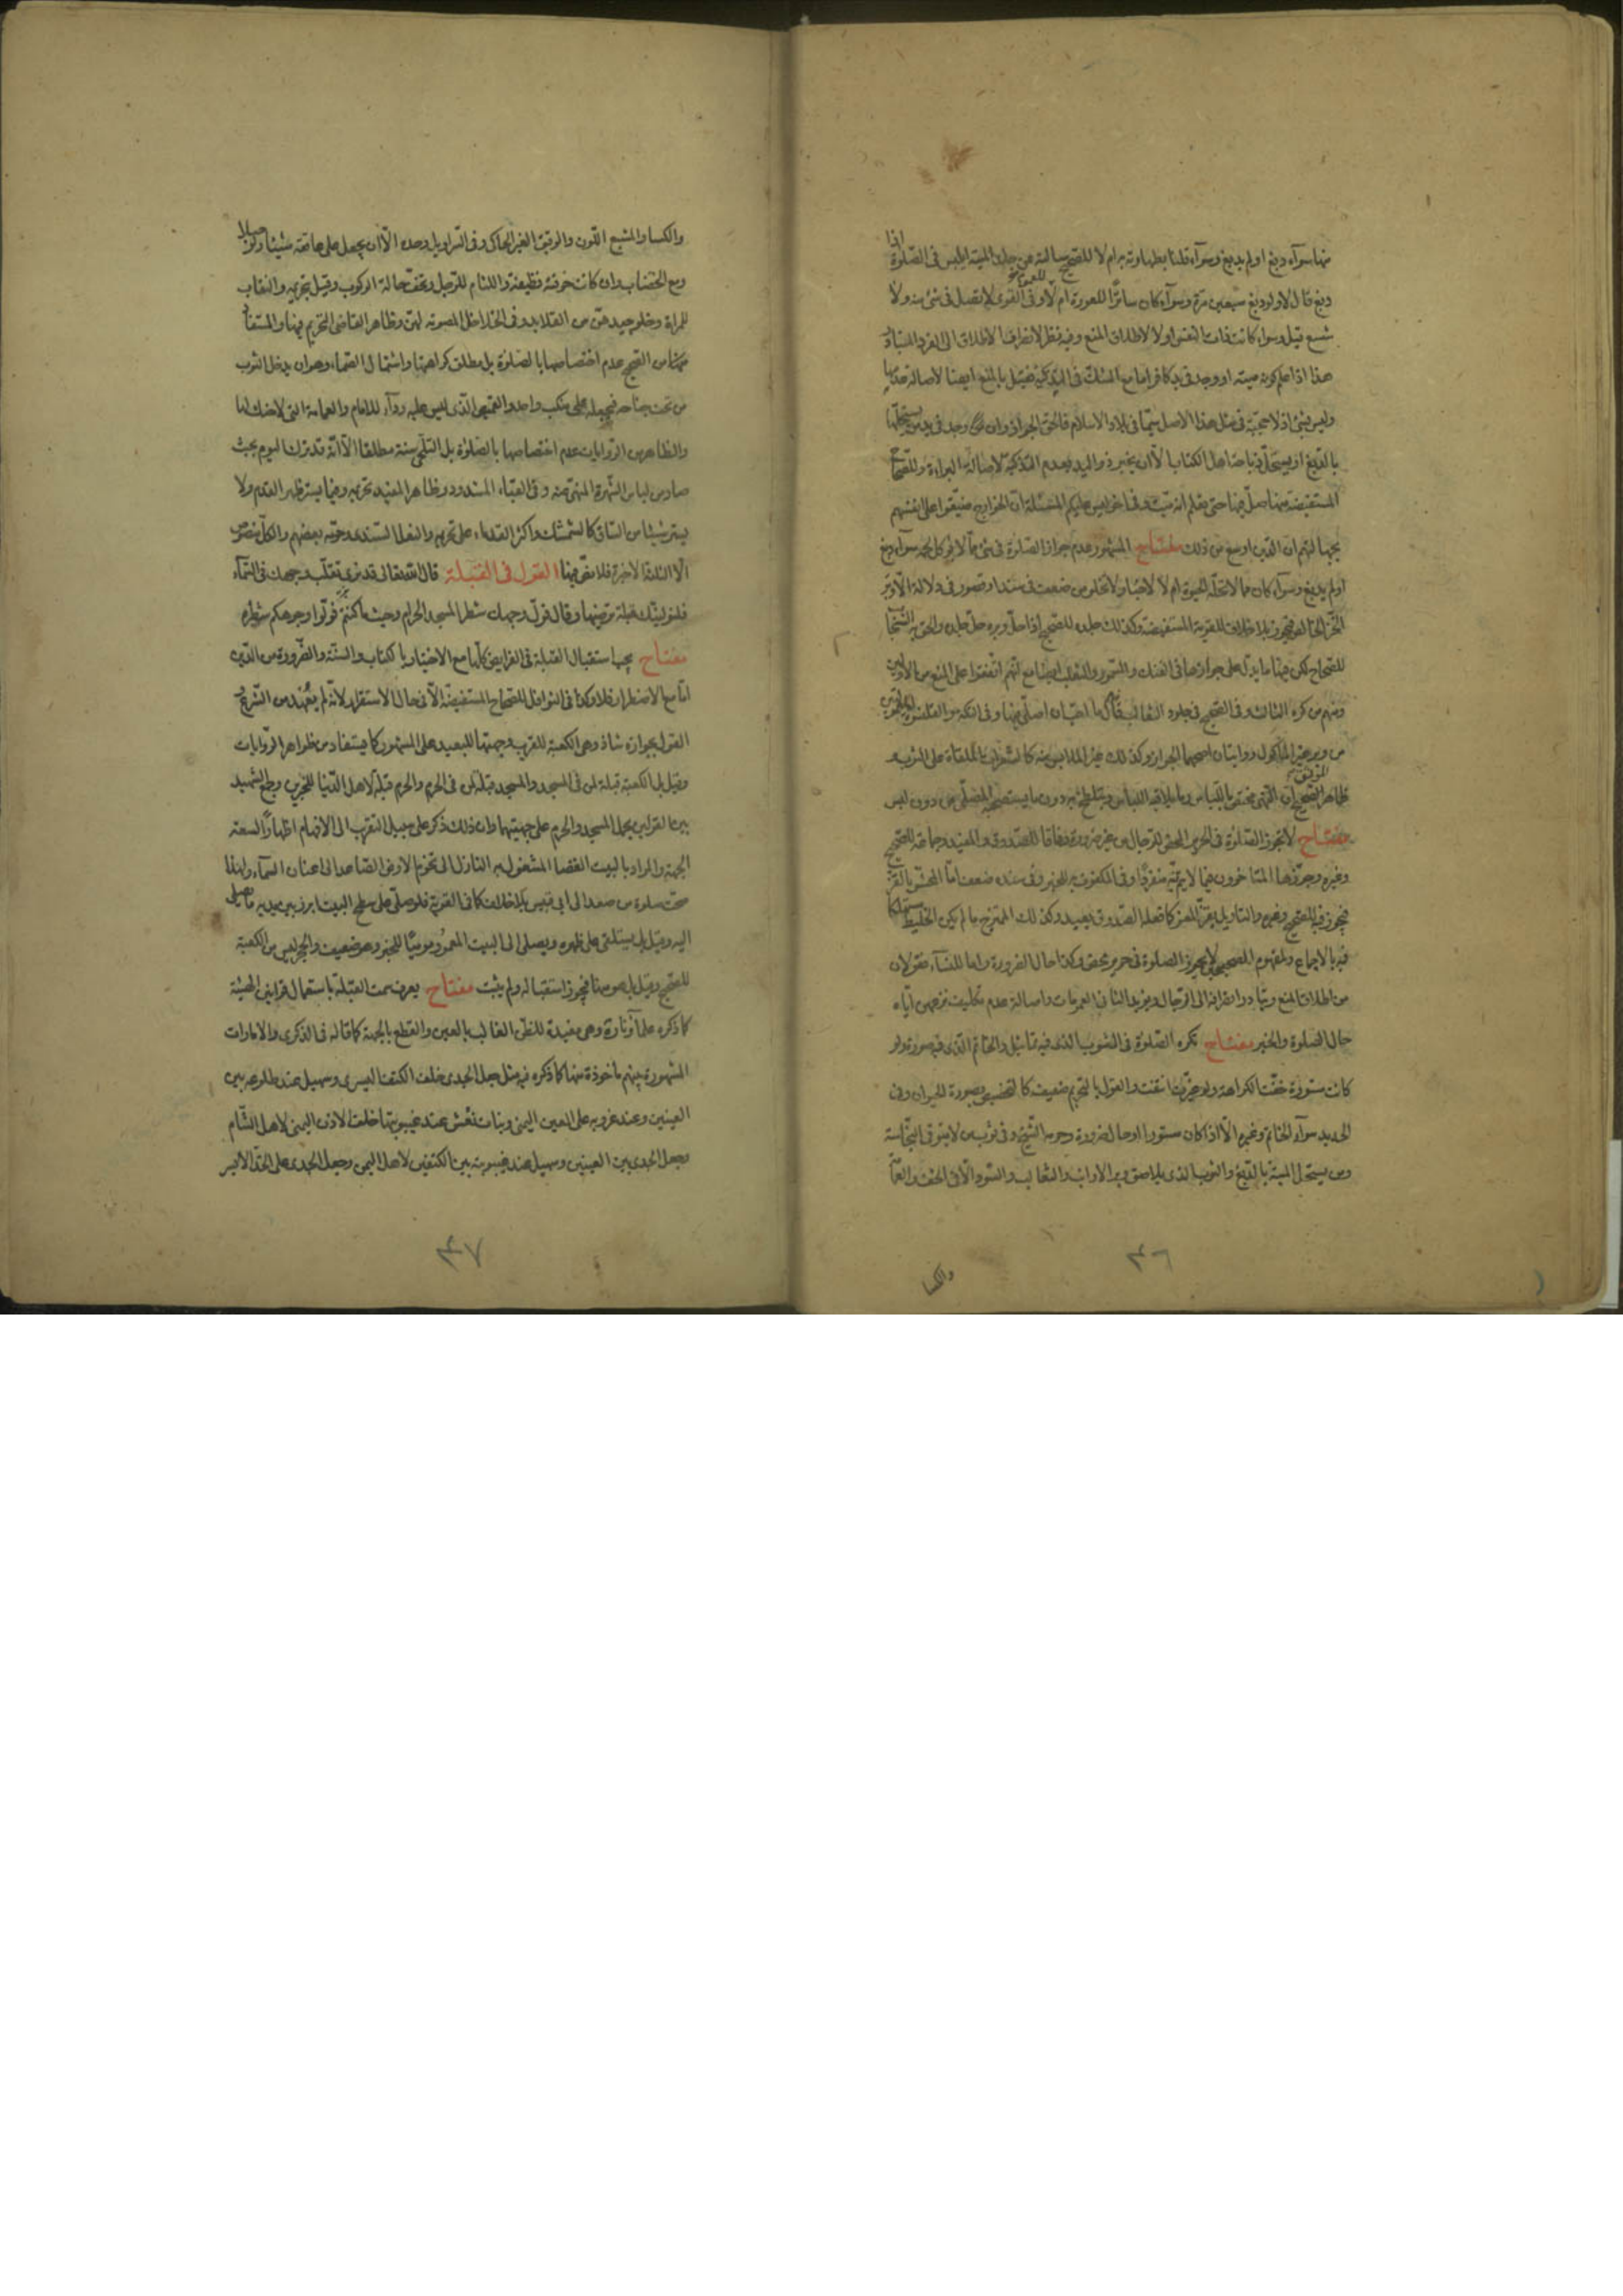 منها سوآء دبغ او لم يدبغ وسوآء قلنا بطهارته به ام لا للصحيح سالته عن جلد الميتة ايلبس فى الصلوة اذا
دبغ قال لا ولو دبغ سبعين مرة وسوآء كان ساترا للعورة ام لا وفى القوى لا تصل فى شئ منه ولا
شسع قيل وسواء كانت ذات النفس او لا لاطلاق المنع وفيه نظر لانصراف الاطلاق الى الفرد المتبادر
هذا اذا علم كونه ميتة او وجد فى يد كافر اما مع الشك فى التذكية فقيل بالمنع ايضا لاصالة عدمها
وليس بشئ اذ لا حجية فى مثل هذا الاصل سيما فى بلاد الاسلام فالحق الجواز وان وجد فى يد مستحلها
بالدبغ او يستحل ذباحة اهل الكتاب الا ان يخبر ذو اليد بعدم التذكية لاصالة البراءة وللصحاح
المستفيضة منها صل فيها حتى تعلم انه ميت وفى اخر ليس عليكم المسئلة ان الخوارج ضيقوا على انفسهم
بجهالتهم ان الدين اوسع من ذلك مفتاح المشهور عدم جواز الصلوة فى شئ مما لا يؤكل لحمه سوآء دبغ
او لم يدبغ وسوآء كان مما لا تحله الحيوة ام لا لاخبار لا تخلو من ضعف فى سند او قصور فى دلالة الا وبر
الخز الخالص فيجوز بلا خلاف للقوية المستفيضة وكذلك جلده للصحيح اذا حل وبره حل جلده والحق به السنجاب
للصحاح لكن فيها ما يدل على جوازها فى الفنك والسمور والثعلب ايضا مع انهم اتفقوا على المنع من الاولين
ومنهم من كره الثالث وفى الصحيح فى جلود الثعالب قال ما احب ان اصلى فيها وفى التكة والقلنسوة المعمولتين
من وبر غير الماكول روايتان اصحهما الجواز وكذلك غير الملابس منه كالشعرات الملقاة على الثوب و
ظاهر الموثق ان النهى مختص باللباس وما يلاقيه اللباس ويتلطخ به دون ما يستصحبه المصلى من دون لبس
مفتاح لا تجوز الصلوة فى الحرير المحض للرجال من غير ضرورة وفاقا للصدوق والمفيد وجماعة للصحيح
وغيره وجوزها المتاخرون فيما لا يتم فيه منفردا وفى المكفوف به للخبر وفى سنده ضعف اما المحشو بالقز
فيجوز فيه للصحيح وغيره والتاويل بقز المعز كما فعله الصدوق بعيد وكذلك الممتزج ما لم يكن الخليط مستهلكا
فيه بالاجماع ولمفهوم الصحيح لا تجوز الصلوة فى حرير محض وكذا حال الضرورة واما للنسآء فقولان
من اطلاق المنع وتبادر انصرافه الى الرجال ويؤيد الثانى العمومات واصالة عدم تكليف نزعهن اياه
حال الصلوة والخبر مفتاح تكره الصلوة فى الثوب الذى فيه تماثيل والخاتم الذى فيه صورة ولو
كانت مستورة خفت الكراهة ولو غيرت انتفت والقول بالتحريم ضعيف كالتخصيص بصورة الحيوان وفى
الحديد سوآء الخاتم وغيره الا اذا كان مستورا او حال ضرورة وحرمه الشيخ وفى ثوب من لا يتوقى النجاسة
ومن يستحل الميتة بالدبغ والثوب الذى يلاصق وبر الارانب والثعالب والسود الا فى الخف والعمامة
والكسا
٣٦
والكسا والمشبع اللون والرقيق الغير الحاكى وفى السراويل وحده الا ان يجعل على عاتقه شيئا ولو حبلا
ومع الخضاب وان كانت خرقته نظيفة واللثام للرجل وتخف حالة الركوب وقيل بتحريمه والنقاب
للمراة وخلو جيدهن من القلايد وفى الخلاخل المصوتة لهن وظاهر القاضى التحريم فيها والمستفاد
من الصحيح عدم اختصاصها بالصلوة بل مطلق كراهتها واشتمال الصماء وهو ان يدخل الثوب
من تحت جناحه فيجعله على منكب واحد والقميص الذى ليس عليه ردآء للامام والعمامة التى لا حنك لها
والظاهر من الروايات عدم اختصاصها بالصلوة بل التلحى سنة مطلقا الا انه قد ترك اليوم بحيث
صار من لباس الشهرة المنهى عنه وفى القباء المشدود وظاهر المفيد تحريمه وفيما يستر ظهر القدم ولا
يستر شيئا من الساق كالشمشك واكثر القدماء على تحريمه والنعل السندى وحرمه بعضهم والكل منصوص
الا الثلاثة الاخيرة فلا نص فيها القول فى القبلة قال الله تعالى قد نرى تقلب وجهك فى السمآء
فلنولينك قبلة ترضيها وقال فول وجهك شطر المسجد الحرام وحيث ما كنتم فولوا وجوهكم شطره
مفتاح يجب استقبال القبلة فى الفرايض كلها مع الاختيار بالكتاب والسنة والضرورة من الدين
اما مع الاضطرار فلا وكذا فى النوافل للصحاح المستفيضة الا فى حال الاستقرار لانه لم يعهد من الشرع و
القول بجوازه شاذ وهى الكعبة للقريب وجهتها للبعيد على المشهور كما يستفاد من ظواهر الروايات
وقيل بل الكعبة قبلة لمن فى المسجد والمسجد قبلة لمن فى الحرم والحرم قبلة لاهل الدنيا للخبرين وجمع الشهيد
بين القولين بحمل المسجد والحرم على جهتيهما وان ذلك ذكر على سبيل التقريب الى الافهام اظهارا لسعة
الجهة والمراد بالبيت الفضا المشغول به النازل الى تخوم الارض الصاعد الى اعنان السمآء ولهذا
صحت صلوة من صعد الى ابى قبيس بلا خلاف كما فى القوية فلو صلى على سطح البيت ابرز بين يديه ما يصلى
اليه وقيل بل يستلقى على ظهره ويصلى الى البيت المعمور موميا للخبر وهو ضعيف والحجر ليس من الكعبة
للصحيح وقيل بل هو منها فيجوز استقباله ولم يثبت مفتاح يعرف سمت القبلة باستعمال قوانين الهيئة
كما ذكره علماؤنا وهى مفيدة للظن الغالب بالعين والقطع بالجهة كما قاله فى الذكرى والامارات
المشهورة بينهم ماخوذة منها كما ذكره فيه مثل جعل الجدى خلف الكتف اليسرى وسهيل عند طلوعه بين
العينين وعند غروبه على العين اليمنى وبنات نعش عند غيبوبتها خلف الاذن اليمنى لاهل الشام
وجعل الجدى بين العينين وسهيل عند غيبوبته بين الكتفين لاهل اليمن وجعل الجدى على الخد الايسر
٣٧